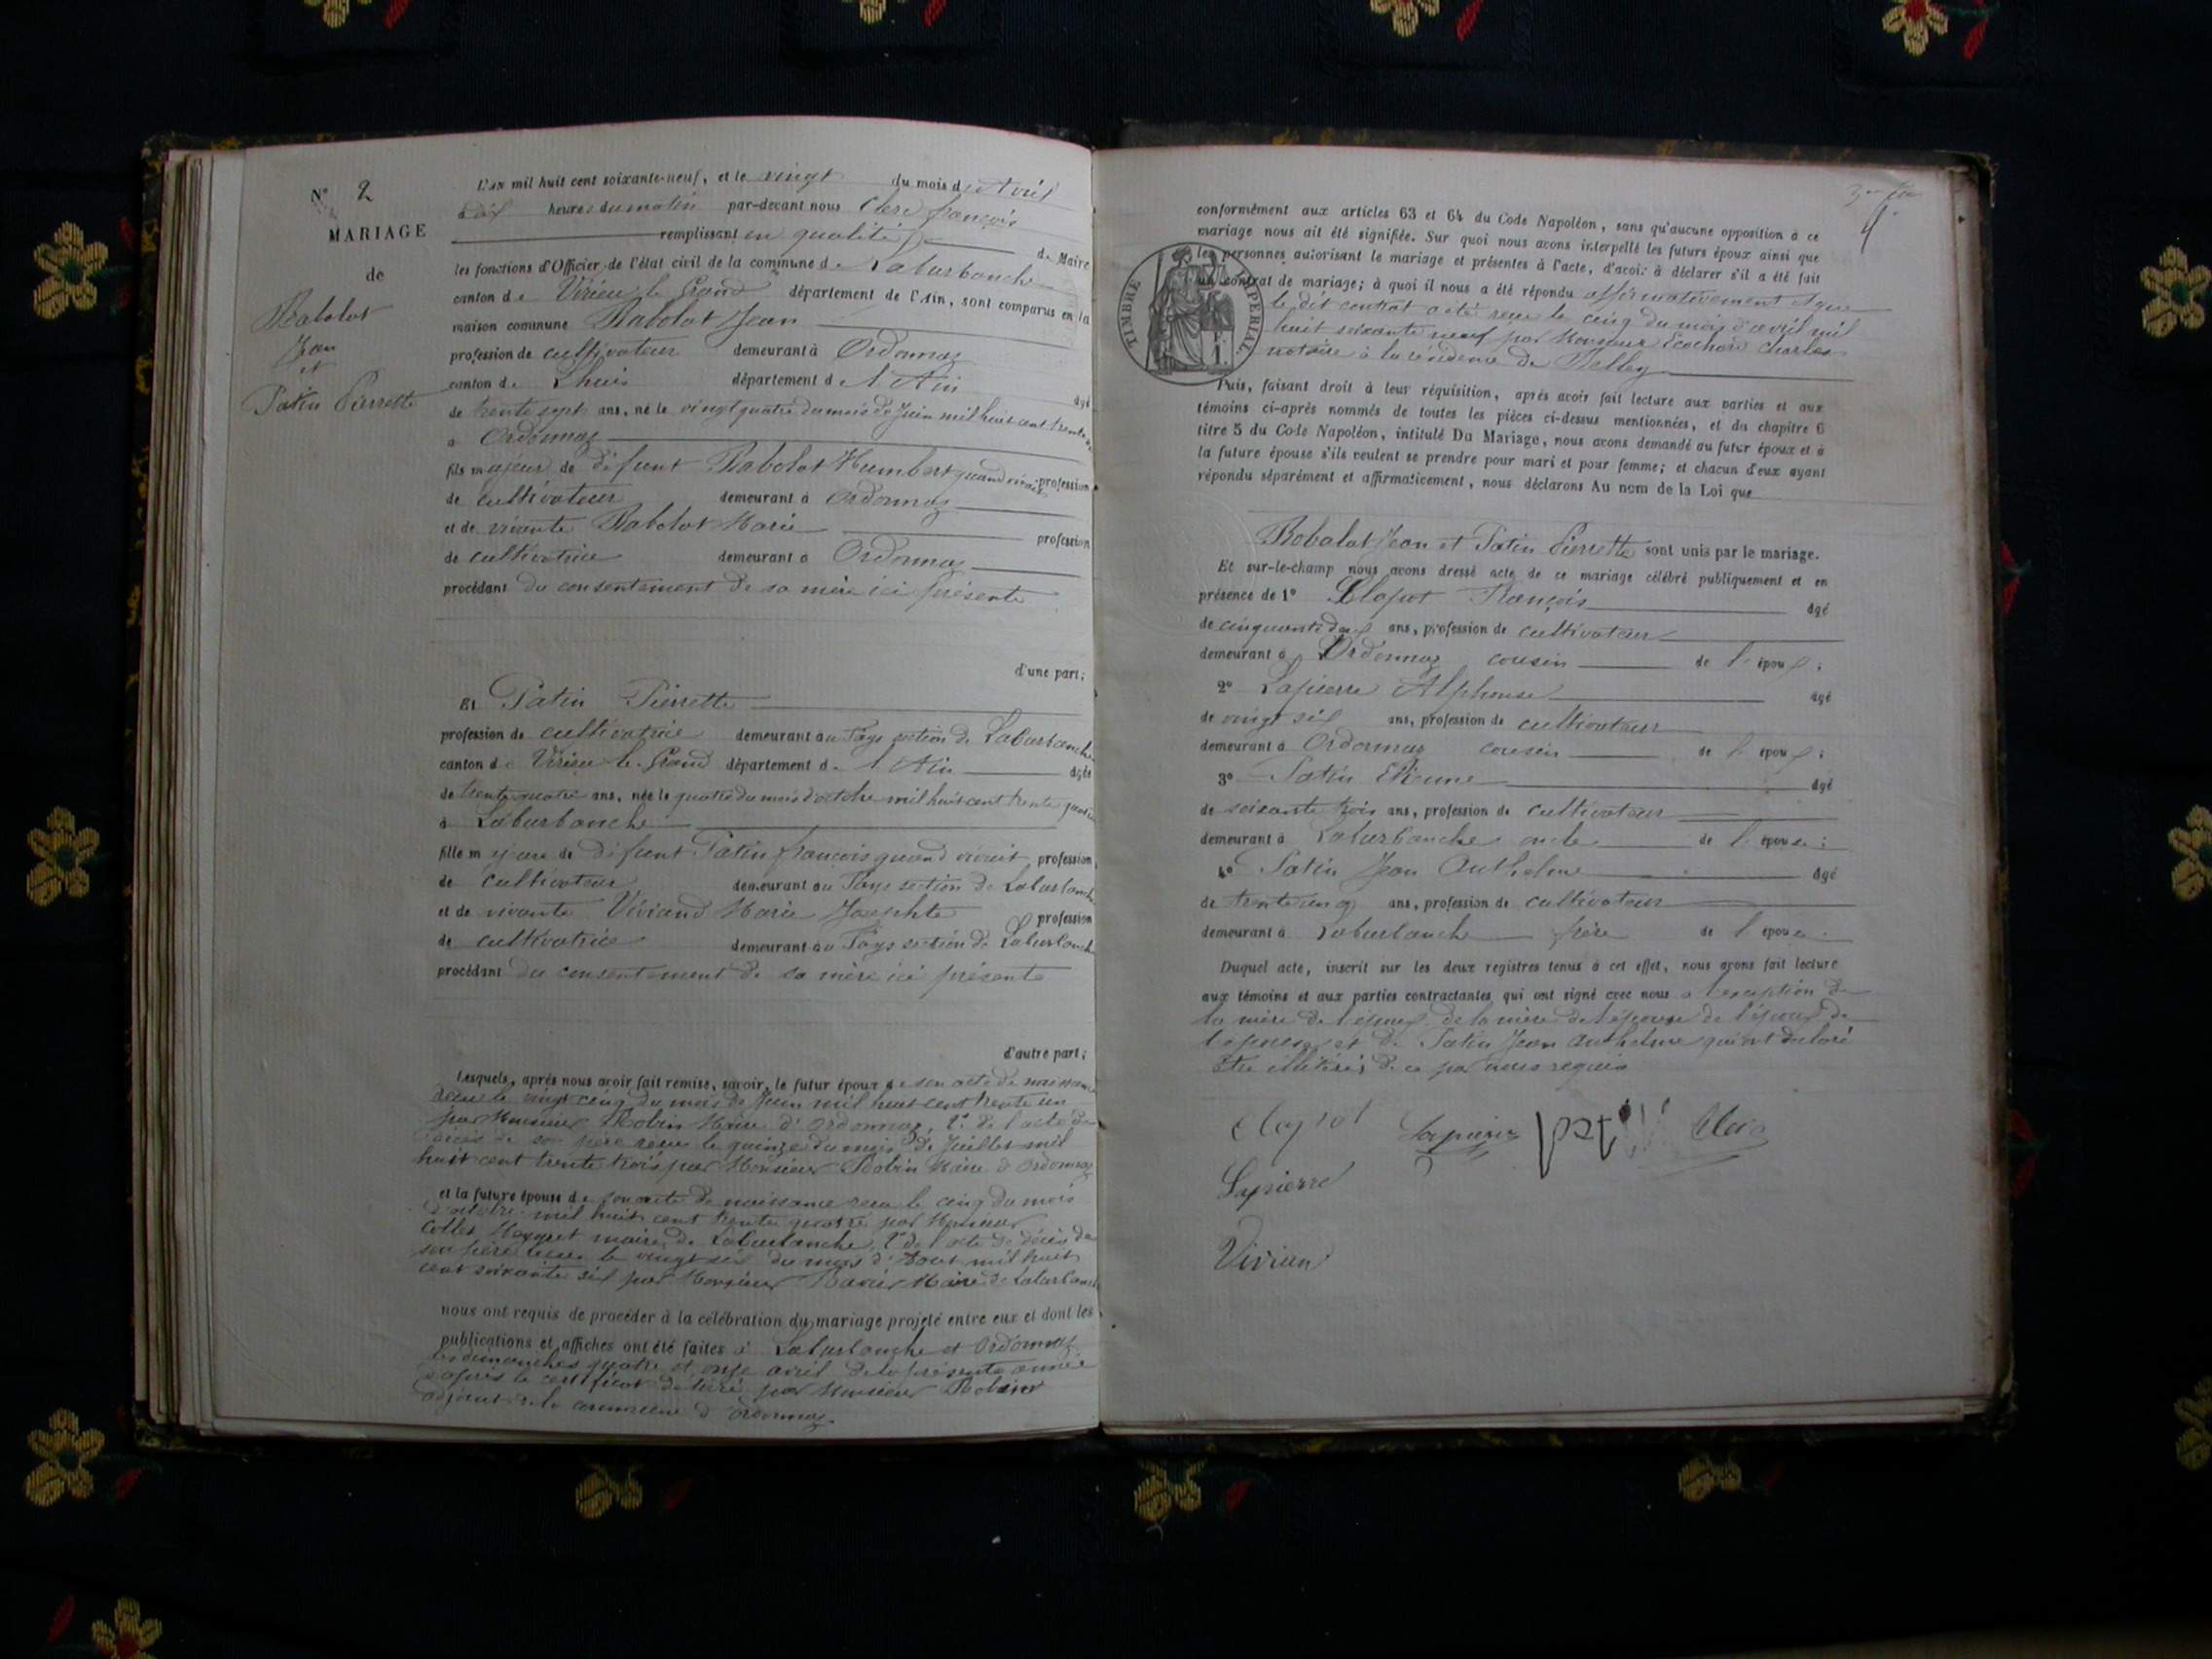 N° 2
MARIAGE
de
Rabolot
Jean
et
Patin Pierrette
L'AN mil huit cent soixante-neuf, et le vingt du mois d'Avril
à dix heures du matin par-devant nous Clerc françois
remplissant en qualité de Maire
les fonctions d'Officier de l'état civil de la commune de Laburbanche
canton de Virieu le Grand département de l'Ain, sont comparus en la
maison commune Rabolot Jean
profession de cultivateur demeurant à Ordonnaz
canton de Lhuis département de l'Ain âgé
de trente sept ans, né le vingt quatre du mois de Juin mil huit cent trente un
à Ordonnaz
fils majeur de défunt Rabolot Humbert quand vivait profession
de cultivateur demeurant à Ordonnaz
et de vivante Rabolot Marie profession
de cultivatrice demeurant à Ordonnaz
procédant du consentement de sa mère ici présente
d'une part;
Et Patin Pierrette
profession de cultivatrice demeurant au Pays section de Laburbanche
canton de Virieu le Grand département de l'Ain âgée
de trente quatre ans, née le quatre du mois d'octobre mil huit cent trente quatre
à Laburbanche
fille majeure de défunt Patin françois quand vivait profession
de cultivateur demeurant au Pays section de Laburbanche
et de vivante Viviand Marie Josephte profession
de cultivatrice demeurant au Pays section de Laburbanche
procédant du consentement de sa mère ici présente
d'autre part;
Lesquels, après nous avoir fait remise, savoir, le futur époux de son acte de naissance
reçu le vingt cinq du mois de Juin mil huit cent trente un
par Monsieur Robin Maire d'Ordonnaz, 2° de l'acte de
décès de son père reçu le quinze du mois de Juillet mil
huit cent trente trois par Monsieur Robin Maire d'Ordonnaz
et la future épouse de son acte de naissance reçu le cinq du mois
d'octobre mil huit cent trente quatre par Monsieur
Collet maire de Laburbanche, 2° de l'acte de décès de
son père reçu le vingt six du mois d'Aout mil huit
cent soixante six par Monsieur Maire de Laburbanche
nous ont requis de procéder à la célébration du mariage projeté entre eux et dont les
publications et affiches ont été faites à Laburbanche et Ordonnaz
les dimanches quatre et onze avril de la présente année
d'après le certificat délivré par Monsieur Robin
adjoint de la commune d'Ordonnaz.
conformément aux articles 63 et 64 du Code Napoléon, sans qu'aucune opposition à ce
mariage nous ait été signifiée. Sur quoi nous avons interpellé les futurs époux ainsi que
les personnes autorisant le mariage et présentes à l'acte, d'avoir à déclarer s'il a été fait
un contrat de mariage; à quoi il nous a été répondu affirmativement et que
le dit contrat a été reçu le cinq du mois d'avril mil
huit soixante neuf par Monsieur Ecochard Charles
notaire à la résidence de Belley
TIMBRE IMPERIAL
Puis, faisant droit à leur réquisition, après avoir fait lecture aux parties et aux
témoins ci-après nommés de toutes les pièces ci-dessus mentionnées, et du chapitre 6
titre 5 du Code Napoléon, intitulé Du Mariage, nous avons demandé au futur époux et à
la future épouse s'ils veulent se prendre pour mari et pour femme; et chacun d'eux ayant
répondu séparément et affirmativement, nous déclarons Au nom de la Loi que
Robalat Jean et Patin Pierrette sont unis par le mariage.
Et sur-le-champ nous avons dressé acte de ce mariage célébré publiquement et en
présence de 1° Clapot François âgé
de cinquante deux ans, profession de cultivateur
demeurant à Ordonnaz cousin de l'époux;
2° Lapierre Alphonse âgé
de vingt six ans, profession de cultivateur
demeurant à Ordonnaz cousin de l'époux;
3° Patin Etienne âgé
de soixante trois ans, profession de cultivateur
demeurant à Laburbanche oncle de l'épouse;
4° Patin Jean Anthelme âgé
de trente cinq ans, profession de cultivateur
demeurant à Laburbanche frère de l'épouse.
Duquel acte, inscrit sur les deux registres tenus à cet effet, nous avons fait lecture
aux témoins et aux parties contractantes qui ont signé avec nous à l'exception de
la mère de l'époux de la mère de l'épouse de l'époux de
l'épouse et de Patin Jean Anthelme qui ont déclaré
être illétérés de ce par nous requis
Clapot Lapierre Clerc
Lapierre
Vivian